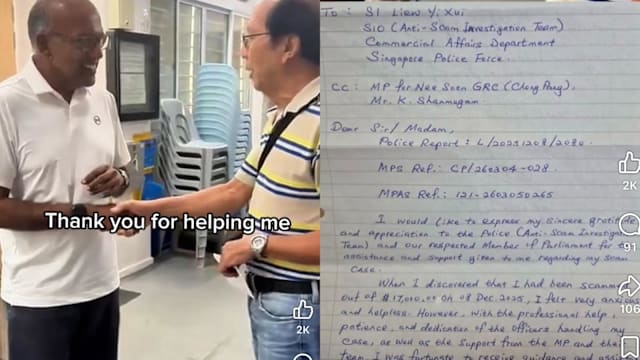 Thank you for helping me
2K
To: SI Liew Yi Xui
SIO (Anti-Scam Investigation Team)
Commercial Affairs Department
Singapore Police Force.
CC: MP for Nee Soon GRC (Chong Pang),
Mr. K. Shanmugam
Dear Sir/ Madam,
Police Report: L/20251208/2080.
MPS Ref.: CP/260304-028.
MPAS Ref.: 121-2603050265
I would like to express my sincere
and appreciation to the Police (Anti-Scam
Team) and our respected Member of Parliament for
assistance and support given to me regarding my scam
case.
When I discovered that I had been
out of $17,010.00 on 08 Dec. 2025, I felt very
and helpless. However, with the professional help,
patience, and dedication of the officers handling my
case, as well as the support from the MP and the
team, I was fortunate to receive guidance and
2K
91
106